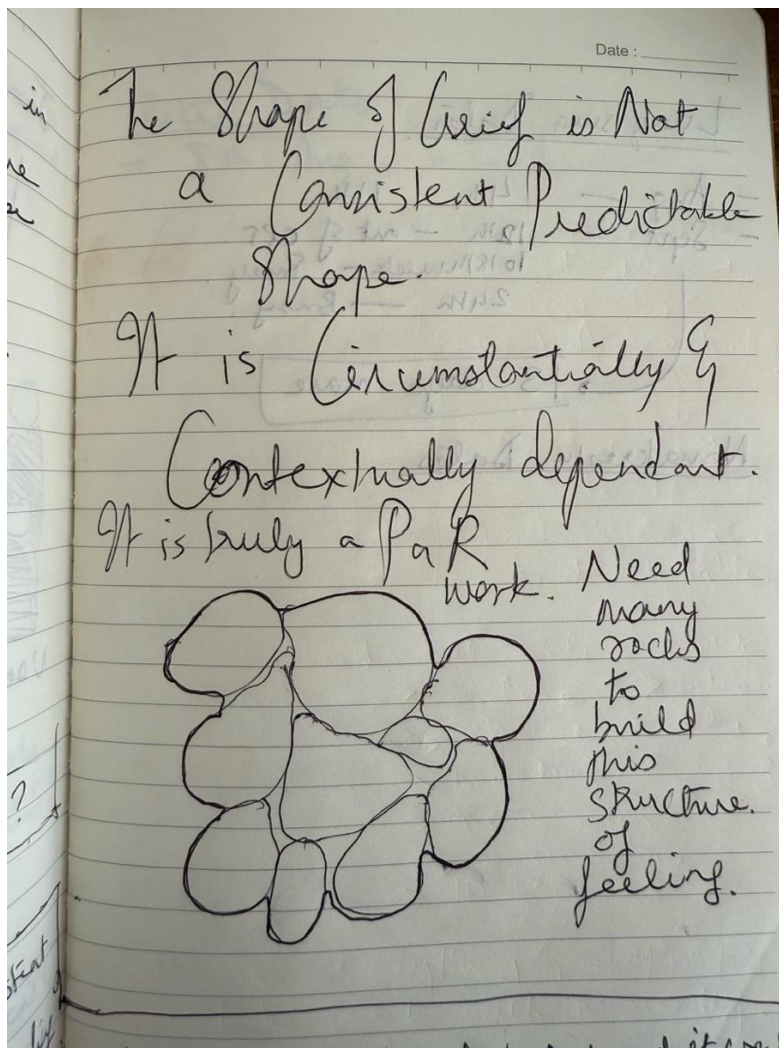 Date :
The Shape of Grief is Not
a Consistent Predictable
Shape.
It is Circumstantially &
Contextually dependant.
It is truly a PaR
work.
Need
many
rocks
to
build
this
structure.
of
feeling.
in
?